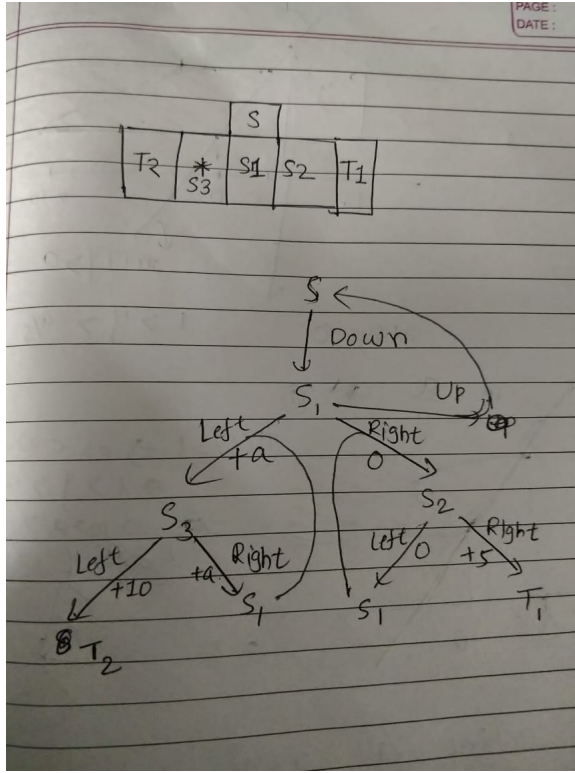 PAGE :
DATE :
S
T2 * S3 S1 S2 T1
S
Down
S1
Up
Left Right
+a 0
S3 S2
Left Right Left Right
+10 +a 0 +5
T2 S1 S1 T1